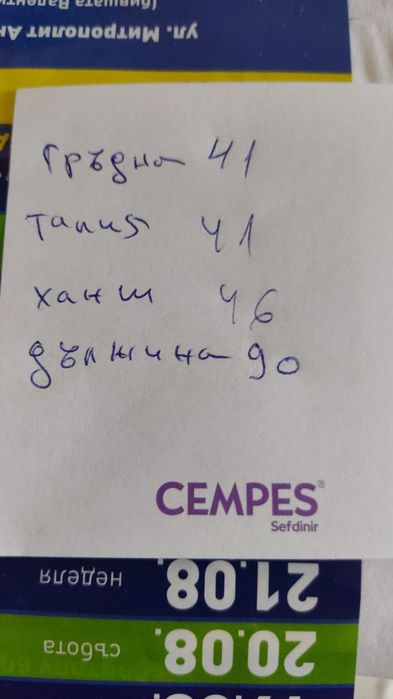 (бившата Валенти
ул. Митрополит Ан
гръдна 41
талия 41
ханш 46
дължина 90
CEMPES®
Sefdinir
неделя 21.08.
събота 20.08.